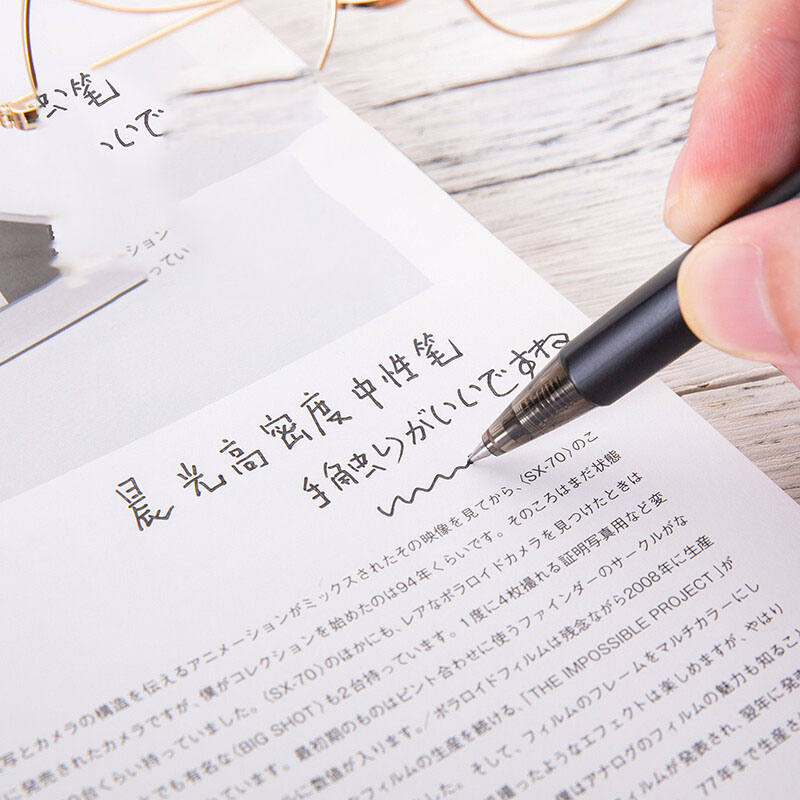 虫)笔
いいで
ション
ってい
晨光高密度中性笔
手触りがいいですね
写とカメラの構造を伝えるアニメーションがミックスされたその映像を見てから、〈SX-70〉のこ
に発売されたカメラですが、僕がコレクションを始めたのは94年くらいです。そのころはまだ状態
台くらい持っていました。〈SX-70〉のほかにも、レアなポラロイドカメラを見つけたときは
でも有名な〈BIG SHOT〉も2台持っています。1度に4枚撮れる証明写真用など変
ています。最初期のものはピント合わせに使うファインダーのサークルがな
に数値が入ります。/ポラロイドフィルムは残念ながら2008年に生産
フィルムの生産を続ける、「THE IMPOSSIBLE PROJECT」が
した。そして、フィルムのフレームをマルチカラーにし
撮ったようなエフェクトは楽しめますが、やはり
はアナログのフィルムの魅力も知ること
ィルムが発表され、翌年に発表
77年まで生産さ